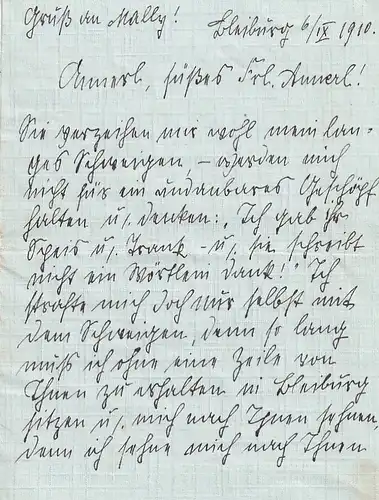 Gruß an Mally!
Bleiburg 6/IX 1910.
Annerl, süßes Frl. Annerl!
Sie verzeihen mir wohl mein lan-
ges Schweigen, – werden mich
nicht für ein undankbares Geschöpf
halten u. denken: „Ich gab ihr
Speis u. Trank – u. sie schreibt
nicht ein Wörtlein Dank!" Ich
strafte mich doch nur selbst mit
dem Schweigen, denn so lang
muss ich ohne eine Zeile von
Ihnen zu erhalten in Bleiburg
sitzen u. mich nach Ihnen sehnen,
denn ich sehne mich nach Ihnen